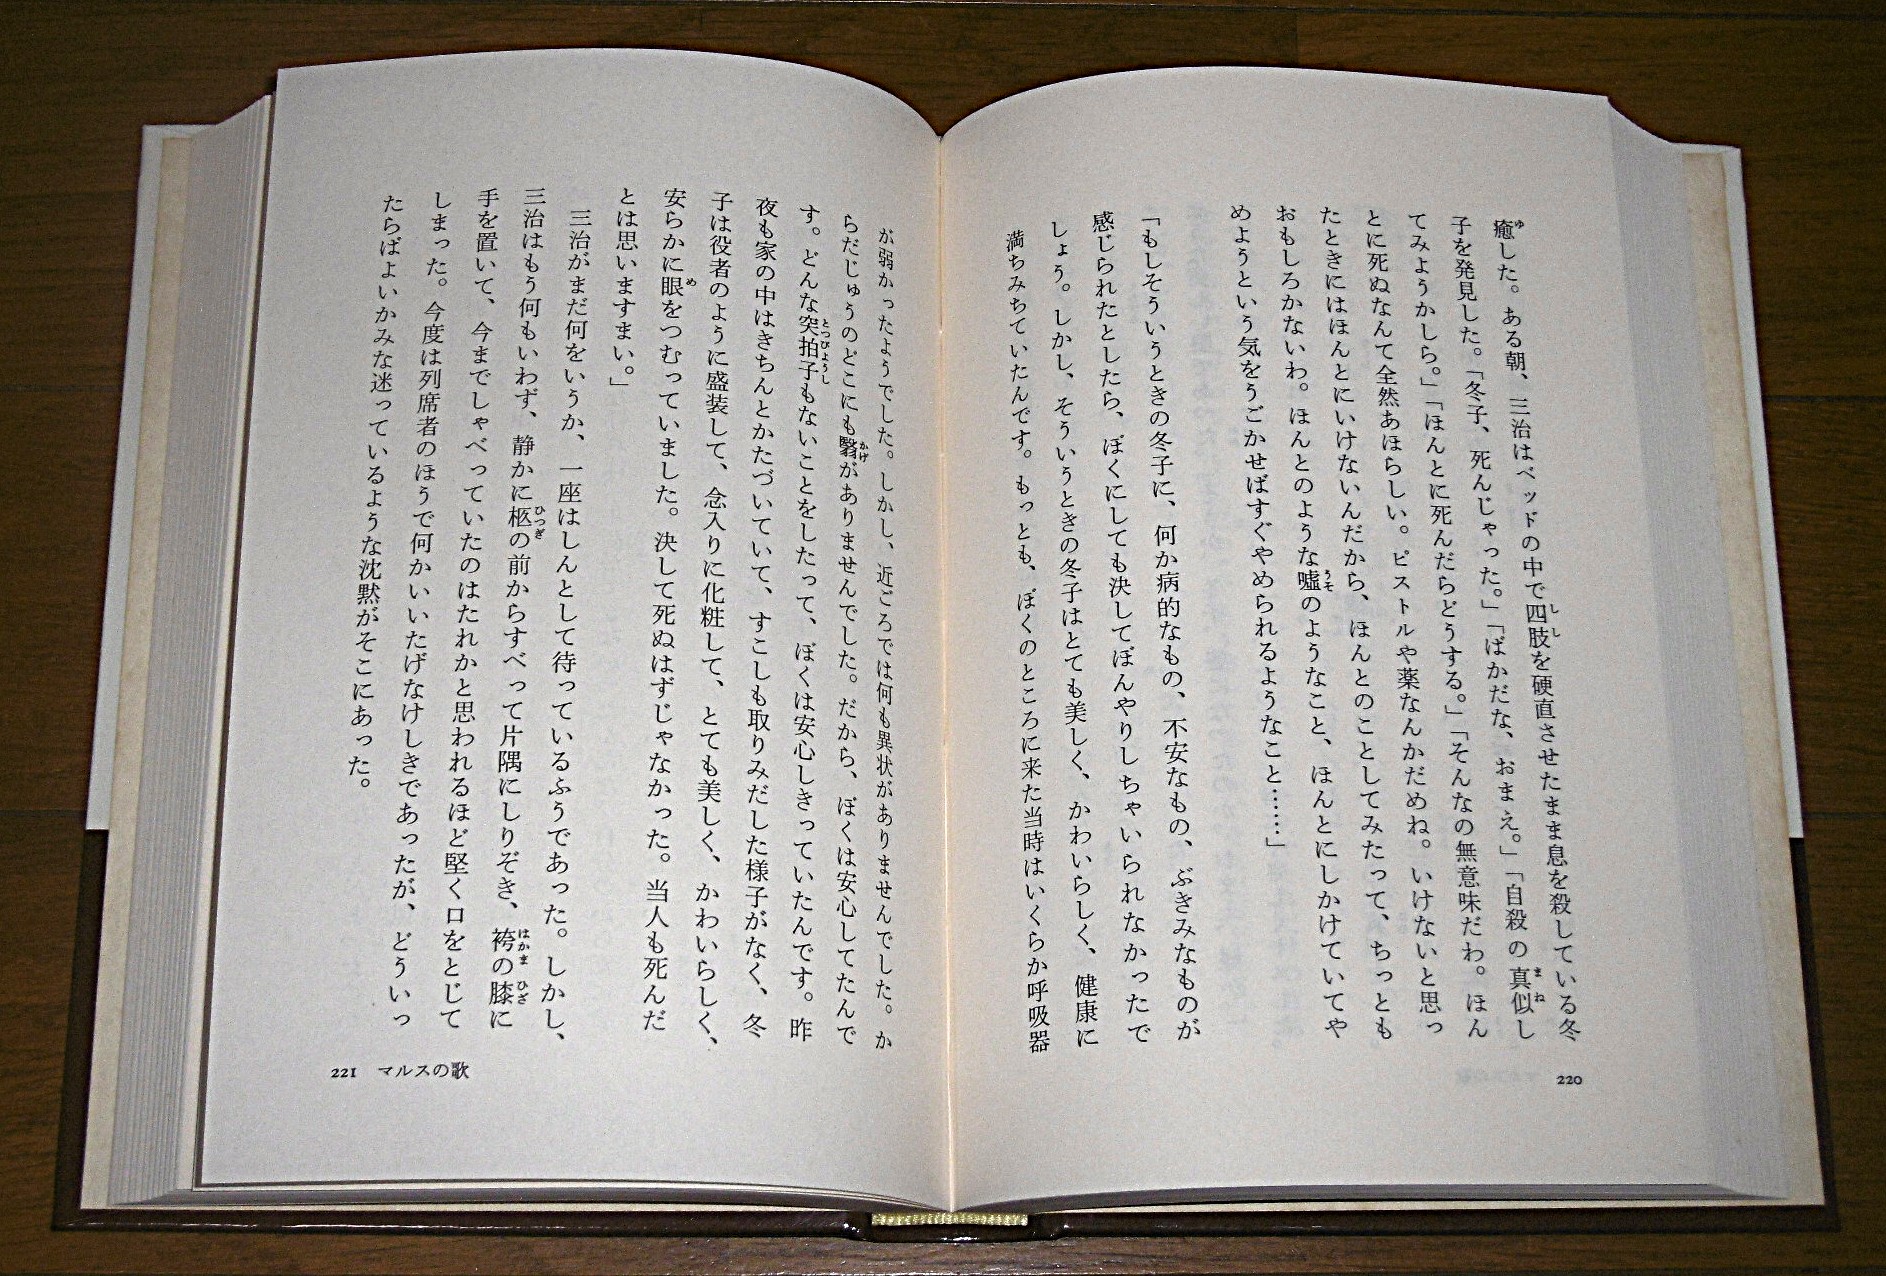 癒した。ある朝、三治はベッドの中で四肢を硬直させたまま息を殺している冬
子を発見した。「冬子、死んじゃった。」「ばかだな、おまえ。」「自殺の真似し
てみようかしら。」「ほんとに死んだらどうする。」「そんなの無意味だわ。ほん
とに死ぬなんて全然あほらしい。ピストルや薬なんかだめね。いけないと思っ
たときにはほんとにいけないんだから、ほんとのことしてみたって、ちっとも
おもしろかないわ。ほんとのような嘘のようなこと、ほんとにしかけていてや
めようという気をうごかせばすぐやめられるようなこと……」
「もしそういうときの冬子に、何か病的なもの、不安なもの、ぶきみなものが
感じられたとしたら、ぼくにしても決してぼんやりしちゃいられなかったで
しょう。しかし、そういうときの冬子はとても美しく、かわいらしく、健康に
満ちみちていたんです。もっとも、ぼくのところに来た当時はいくらか呼吸器
220
が弱かったようでした。しかし、近ごろでは何も異状がありませんでした。か
らだじゅうのどこにも翳がありませんでした。だから、ぼくは安心してたんで
す。どんな突拍子もないことをしたって、ぼくは安心しきっていたんです。昨
夜も家の中はきちんとかたづいていて、すこしも取りみだした様子がなく、冬
子は役者のように盛装して、念入りに化粧して、とても美しく、かわいらしく、
安らかに眼をつむっていました。決して死ぬはずじゃなかった。当人も死んだ
とは思いますまい。」
三治がまだ何をいうか、一座はしんとして待っているふうであった。しかし、
三治はもう何もいわず、静かに柩の前からすべって片隅にしりぞき、袴の膝に
手を置いて、今までしゃべっていたのはたれかと思われるほど堅く口をとじて
しまった。今度は列席者のほうで何かいいたげなけしきであったが、どういっ
たらばよいかみな迷っているような沈黙がそこにあった。
221 マルスの歌